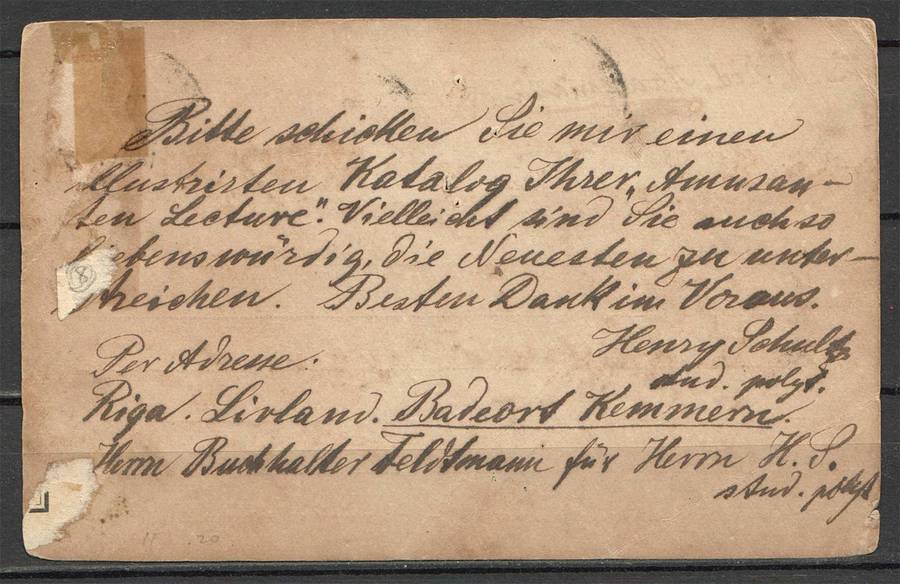 Bitte schicken Sie mir einen
illustrirten Katalog Ihrer „Amüsan-
ten Lecture“. Vielleicht sind Sie auch so
liebenswürdig, die Neuesten zu unter-
streichen. Besten Dank im Voraus.
Henry Schultz
stud. polyt.
Per Adresse:
Riga. Livland. Badeort Kemmern.
Herrn Buchhalter Feldtmann für Herrn H. S.
stud. polyt
8